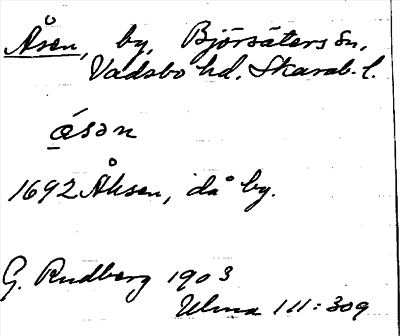 Åsen, by, Björsäters sn,
Vadsbo hd. Skarab. l.
ǻsən
1692 Åhsen, då by.
G. Rudberg 1903
Ulma 111:309